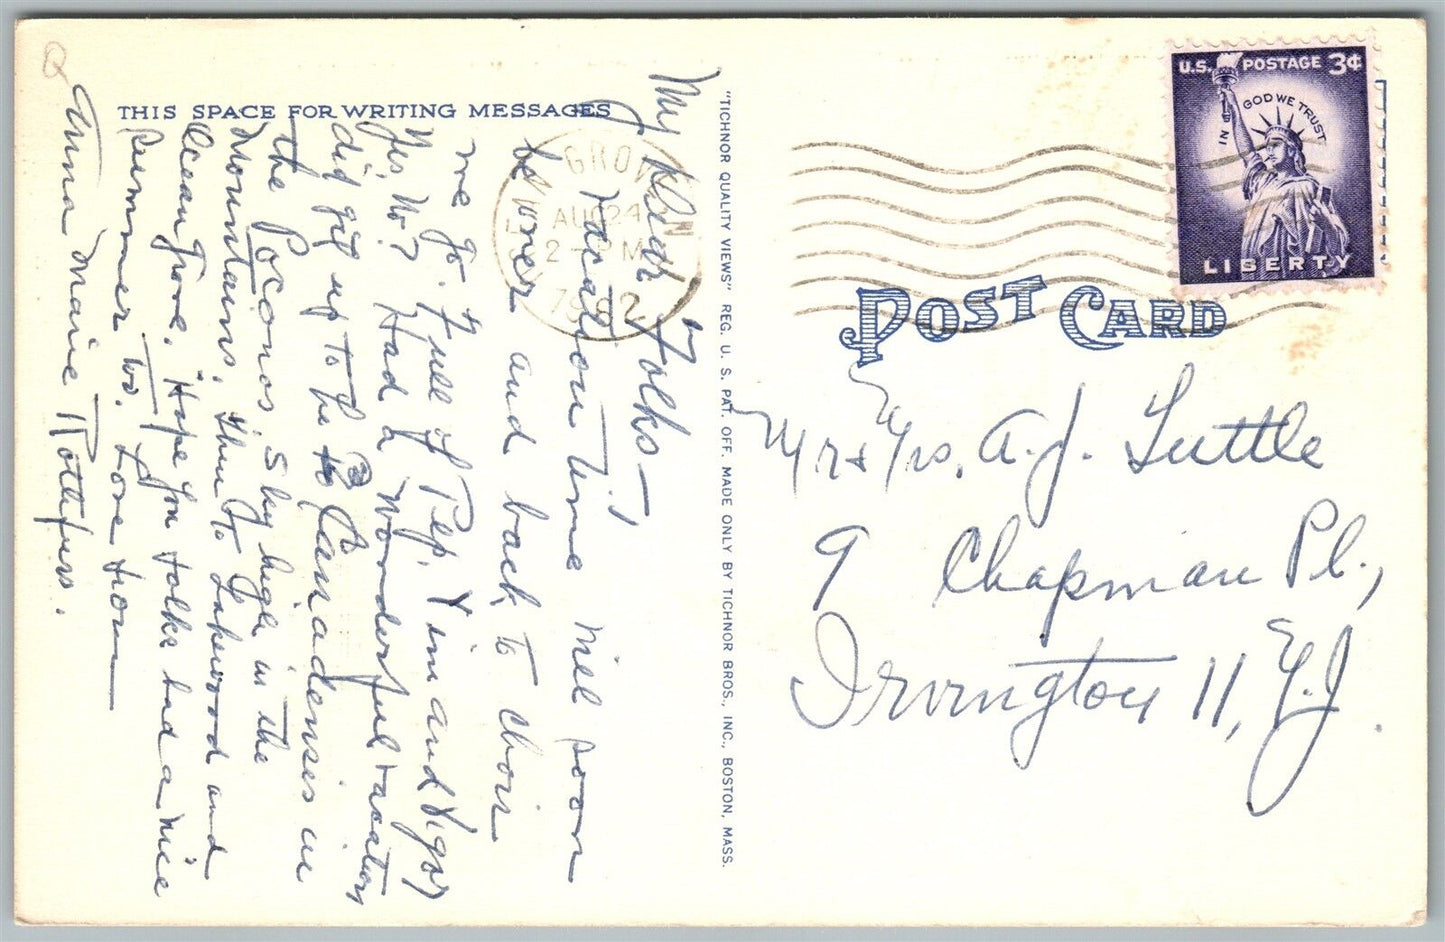 THIS SPACE FOR WRITING MESSAGES
My Dear Folks—
Vacation time will soon
be over and back to choir
we go. Full of Pep, Vim and Vigor
Yes, No? Had a wonderful vacation
did get up to the Canadenses in
the Poconos sky high in the
Mountains, then to Lakewood and
Ocean Grove. Hope you folks had a nice
summer too. Love from
Anna Marie Rothfuss.
"TICHNOR QUALITY VIEWS" REG. U. S. PAT. OFF. MADE ONLY BY TICHNOR BROS., INC., BOSTON, MASS.
AUG 24
2 - PM
U.S. POSTAGE 3¢
IN GOD WE TRUST
LIBERTY
POST CARD
Mr & Mrs. A. J. Tuttle
9 Chapman Pl.,
Irvington 11, N.J.